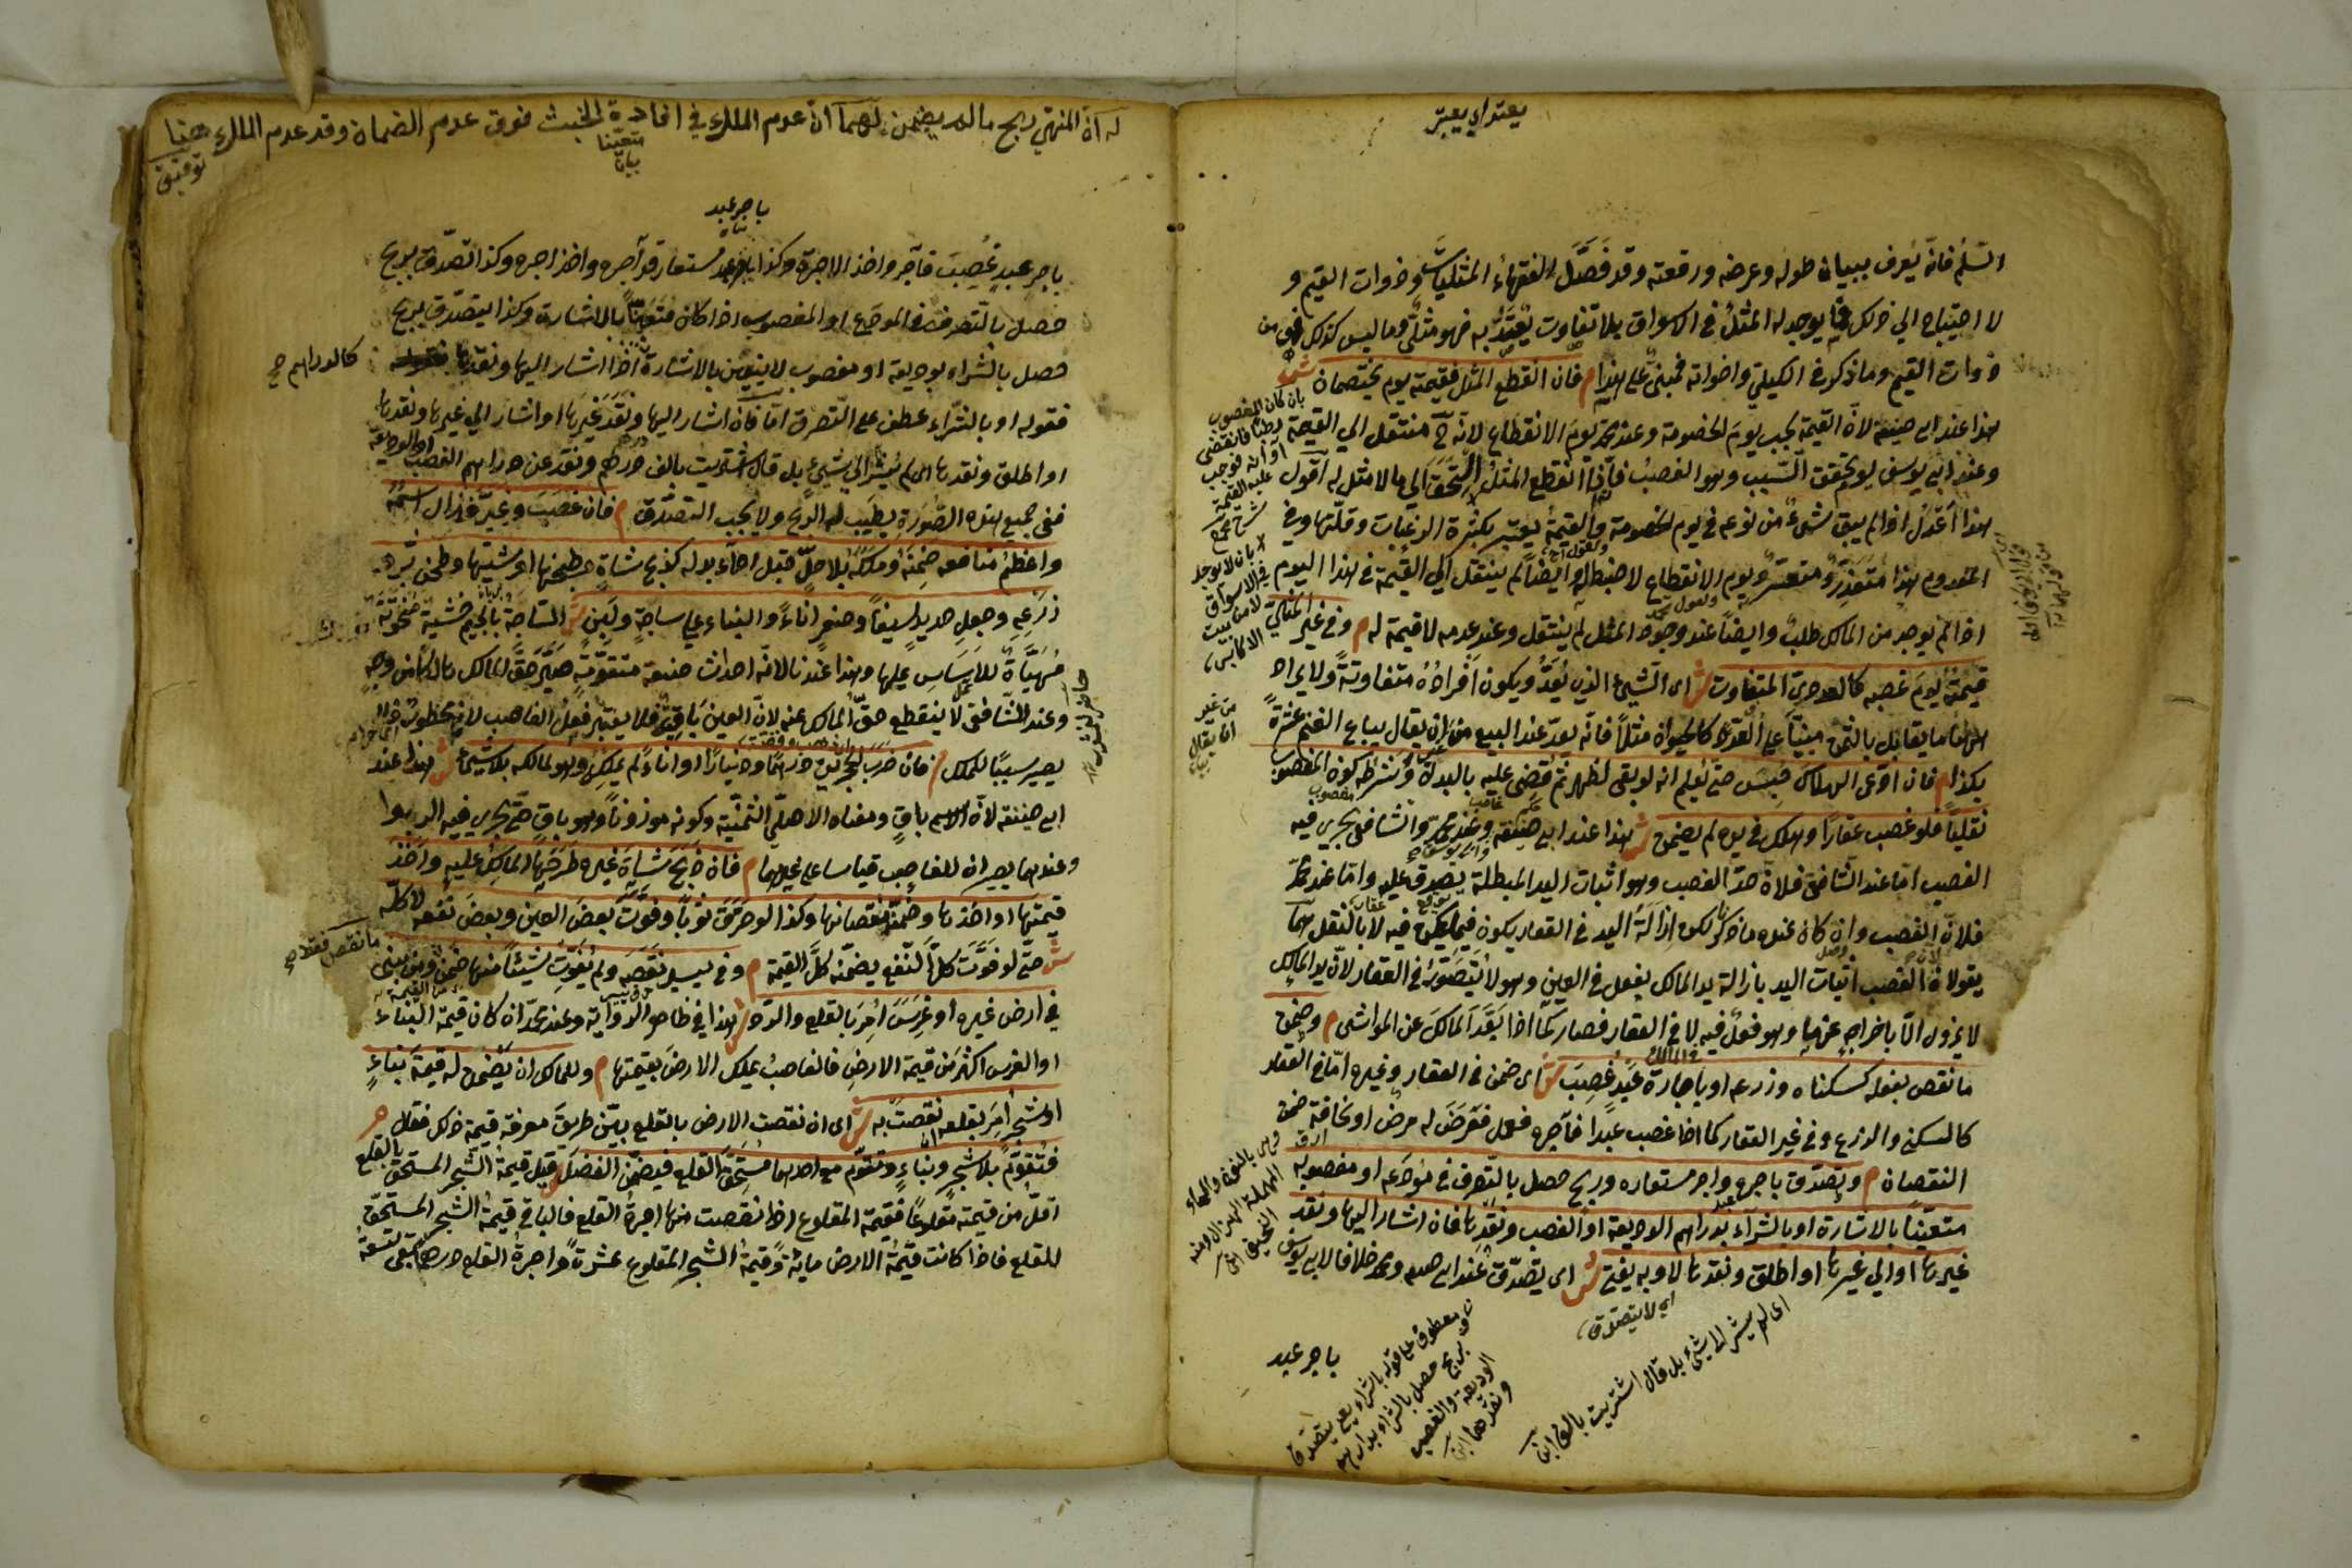 يعتد اي يعتبر
السلم فانه يعرف ببيان طوله وعرضه ورقعته وقد فصل الفقهاء المثليات وذوات القيم و
لا احتياج الى ذلك فما يوجد له المثل في الاسواق بلا تفاوت يعتد به فهو مثلي وما ليس كذلك فمن
ذوات القيم وما ذكر في الكيلي واخواته فمبني على هذا م فان انقطع المثل فقيمته يوم يختصمان ش
هذا عند ابي حنيفة لان القيمة تجب يوم الخصومة وعند محمد يوم الانقطاع لانه ح منتقل الى القيمة
وعند ابي يوسف يوم تحقق السبب وهو الغصب فانه اذا انقطع المثل التحق بما لا مثل له اقول
هذا اعدل اذا لم يبق شيء من نوعه في يوم الخصومة والقيمة يعتبر بكثرة الرغبات وقلتها وفي
المعدوم هذا متعذر او متعسر ويوم الانقطاع لا ضبط له وايضا لم ينتقل الى القيمة في هذا اليوم
اذا لم يوجد من المالك طلب وايضا عند وجود المثل لم ينتقل وعند عدمه لا قيمة له م وفي غير المثلي
قيمته يوم غصبه كالعددي المتفاوت ش اي الشيء الذي يعد ويكون افراده متفاوتة ولا يراد
هنا ما يقابل بالثمن مبنيا على العدد كالحيوان مثلا فانه يعد عند البيع من غير ان يقال يباع الغنم عشرة
بكذا م فان ادعى الهلاك حبس حتى يعلم انه لو بقي لظهر ثم قضي عليه بالبدل وشرطه كون المغصوب
نقليا فلو غصب عقارا وهلك في يده لم يضمن ش هذا عند ابي حنيفة وعند محمد والشافعي يجري فيه
الغصب اما عند الشافعي فلان حد الغصب وهو اثبات اليد المبطلة يصدق عليه واما عند محمد
فلان الغصب وان كان عنده ما ذكر لكن ازالة اليد في العقار يكون فيما يمكن فيه لا بالنقل هما
يقولان الغصب اثبات اليد بازالة يد المالك بفعل في العين وهو لا يتصور في العقار لان يد المالك
لا يزول الا باخراجه عنها وهو فعل فيه لا في العقار فصار كما اذا بعد المالك عن المواشي م وضمن
ما نقص بفعله كسكناه وزرعه او باجارة عبد غصب ش اي ضمن في العقار وغيره اما في العقار
كالسكنى والزرع وفي غير العقار كما اذا غصب عبدا فآجره فعمل فعرض له مرض او نحافة ضمن
النقصان م وتصدق باجره واجر مستعاره وربح حصل بالتصرف في مودعه او مغصوبه
متعينا بالاشارة او بالشراء بدراهم الوديعة او الغصب ونقدها فان اشار اليها ونقد
غيرها او الى غيرها او اطلق ونقدها لا وبه يفتى ش اي تصدق عند ابي حنيفة ومحمد خلافا لابي يوسف
اي لا يتصدق
اي لم يشر الى شيء بل قال اشتريت بالف
باجر عبد
له ان المنهي ربح ما لم يضمن لهما ان عدم الملك في افادة الخبث فوق عدم الضمان وقد عدم الملك هنا
باجر عبد
باجر عبد غصب فآجر واخذ الاجرة وكذا باجر عبد مستعار قد آجره واخذ اجره وكذا تصدق بربح
حصل بالتصرف في المودع او المغصوب اذا كان متعينا بالاشارة وكذا يتصدق بربح
حصل بالشراء بوديعة او مغصوب لا يتعين بالاشارة اذا اشار اليها ونقدها
كالدراهم صح
فقوله او بالشراء عطف على التصرف اما فان اشار اليها ونقد غيرها او اشار الى غيرها ونقدها
او اطلق ونقدها اي لم يشر الى شيء بل قال اشتريت بالف درهم ونقد عن دراهم الغصب او الوديعة
ففي جميع هذه الصورة يطيب له الربح ولا يجب التصدق م فان غصب وغير فزال اسمه
واعظم منافعه ضمنه وملكه بلا حل قبل اداء بدله كذبح شاة وطبخها او شيها وطحن بر
وزرعه وجعل حديد سيفا وصفر اناء والبناء على ساجة ولبن ش الساجة بالجيم خشبة منحوتة
مهيأة للاساس عليها وهذا عندنا لانه احداث صنعة متقومة صير حق المالك هالكا من وجه
وعند الشافعي لا ينقطع حق المالك عنه لان العين باق فلا يعتبر فعل الغاصب لانه محظور فلا
يصير سببا للملك م فان ضرب الحجرين درهما ودينارا او اناء لم يملك وهو لمالكه بلا شيء ش هذا عند
ابي حنيفة لان الاسم باق ومعناه الاصلي الثمنية وكونه موزونا وهو باق حتى يجري فيه الربوا
وعندهما يصير ان للغاصب قياسا على غيرهما م فان ذبح شاة غيره طرحها المالك عليه واخذ
قيمتها او اخذها وضمن نقصانها وكذا لو خرق ثوبا وفوت بعض العين وبعض نفعه لا كله
ش حتى لو فوت كل النفع يضمنه كل القيمة م وفي يسير نقصه ولم يفوت شيئا منها ضمن ومن بنى
ما نقص فقط صح
في ارض غيره او غرس امر بالقلع والرد ش هذا في ظاهر الرواية وعند محمد ان كان قيمة البناء
او الغرس اكثر من قيمة الارض فالغاصب يملك الارض بقيمتها م وللمالك ان يضمن له قيمة بناء
او شجر امر بقلعه نقصت به ش اي ان نقصت الارض بالقلع بين طريق معرفة قيمة ذلك فقال م
فتقوم بلا شجر وبناء وتقوم مع احدهما مستحق القلع فيضمن الفضل ش قيل قيمة الشجر المستحق
اقل من قيمته مقلوعا فقيمة المقلوع اذا نقصت منها اجرة القلع فالباقي قيمة الشجر المستحق
للقلع فاذا كانت قيمة الارض مائة وقيمة الشجر المقلوع عشرة واجرة القلع درهم بقي تسعة